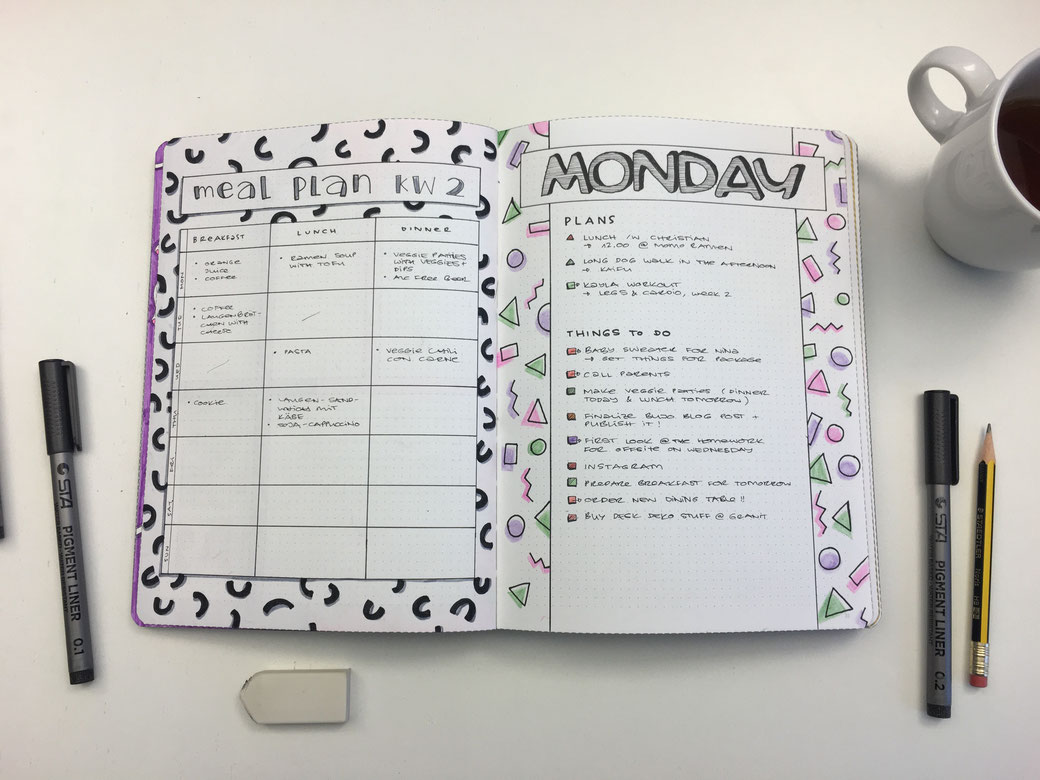 meal PLan KW 2
BREAKFAST LUNCH DINNER
MON
• ORANGE
JUICE
• COFFEE
• RAMEN SOUP
WITH TOFU
• VEGGIE PATTIES
WITH VEGGIES +
DIPS
• ALC FREE BEER
TUE
• COFFEE
• LAUGENBRÖT-
CHEN WITH
CHEESE
WED
• PASTA
• VEGGIE CHILI
CON CARNE
THU
• COOKIE
• LAUGEN-SAND-
WICH MIT
KÄSE
• SOJA-CAPPUCCINO
FRI
SAT
SUN
MONDAY
PLANS
LUNCH /W CHRISTIAN
→ 12.00 @ MOMO RAMEN
LONG DOG WALK IN THE AFTERNOON
→ KAIFU
KAYLA WORKOUT
→ LEGS & CARDIO, WEEK 2
THINGS TO DO
BABY SWEATER FOR NINA
→ GET THINGS FOR PACKAGE
CALL PARENTS
MAKE VEGGIE PATTIES (DINNER
TODAY & LUNCH TOMORROW)
FINALIZE BUJO BLOG POST +
PUBLISH IT!
FIRST LOOK @ THE HOMEWORK
FOR OFFSITE ON WEDNESDAY
INSTAGRAM
PREPARE BREAKFAST FOR TOMORROW
ORDER NEW DINING TABLE!!
BUY DESK DEKO STUFF @ GRANIT
STA PIGMENT LINER 0.1
STA PIGMENT LINER 0.2
STAEDTLER